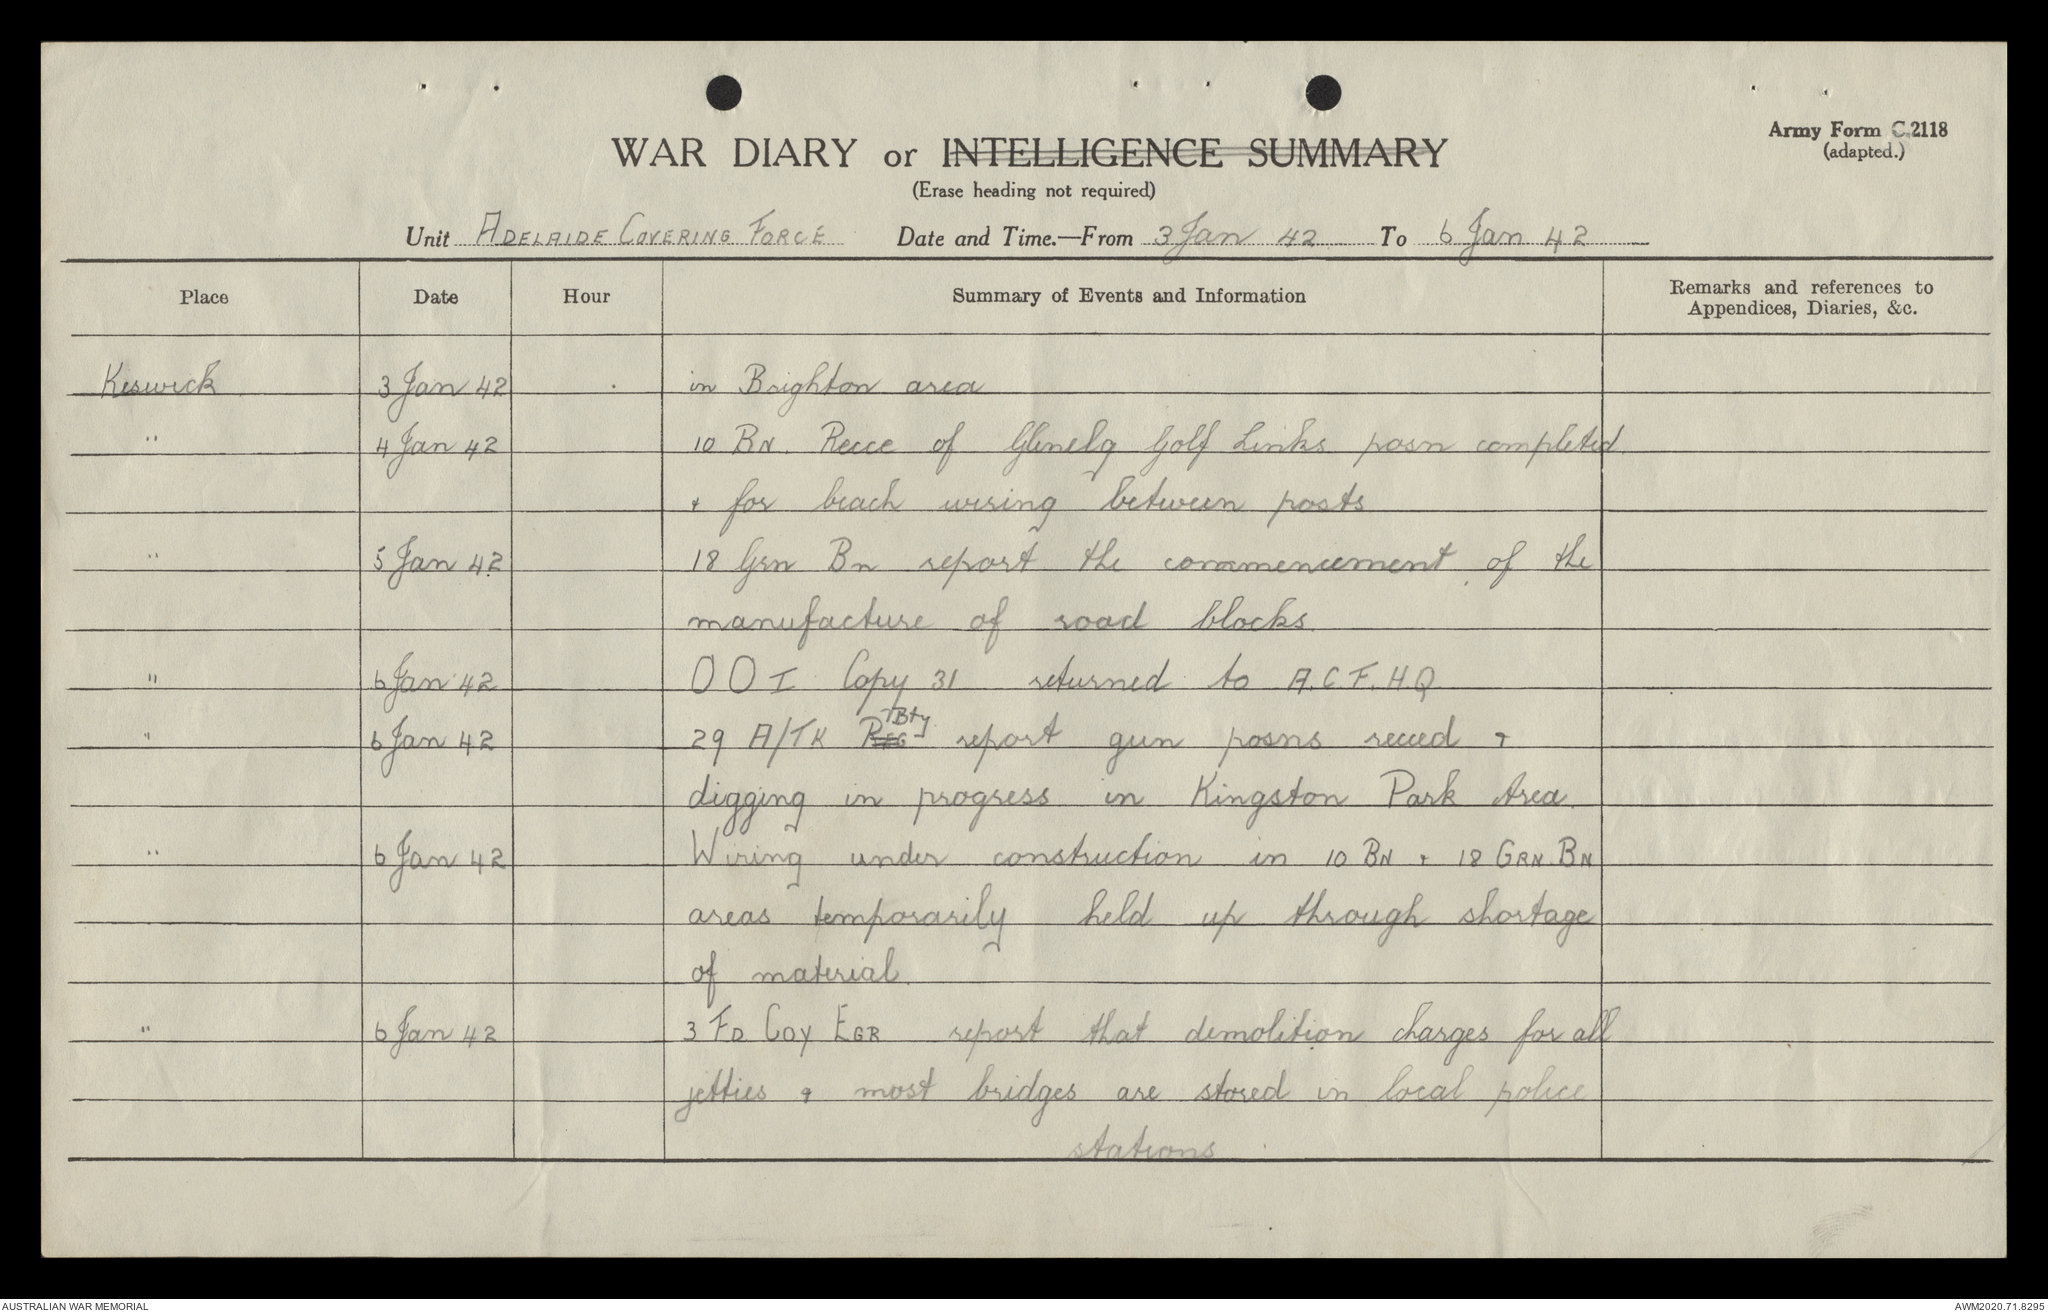 Army Form C.2118
(adapted.)
WAR DIARY or INTELLIGENCE SUMMARY
(Erase heading not required)
Unit ADELAIDE COVERING FORCE Date and Time.—From 3 Jan 42 To 6 Jan 42
Place Date Hour Summary of Events and Information Remarks and references to Appendices, Diaries, &c.
Keswick 3 Jan 42 in Brighton area
" 4 Jan 42 10 BN. Recce of Glenelg Golf Links posn completed
+ for beach wiring between posts
" 5 Jan 42 18 Grn Bn report the commencement of the
manufacture of road blocks.
" 6 Jan 42 O O I Copy 31 returned to A.C.F. H.Q
" 6 Jan 42 29 A/TK REG Bty report gun posns recced +
digging in progress in Kingston Park Area.
" 6 Jan 42 Wiring under construction in 10 BN + 18 GRN BN
areas temporarily held up through shortage
of material.
" 6 Jan 42 3 FD COY EGR report that demolition charges for all
jetties + most bridges are stored in local police
stations
AUSTRALIAN WAR MEMORIAL AWM2020.71.8295